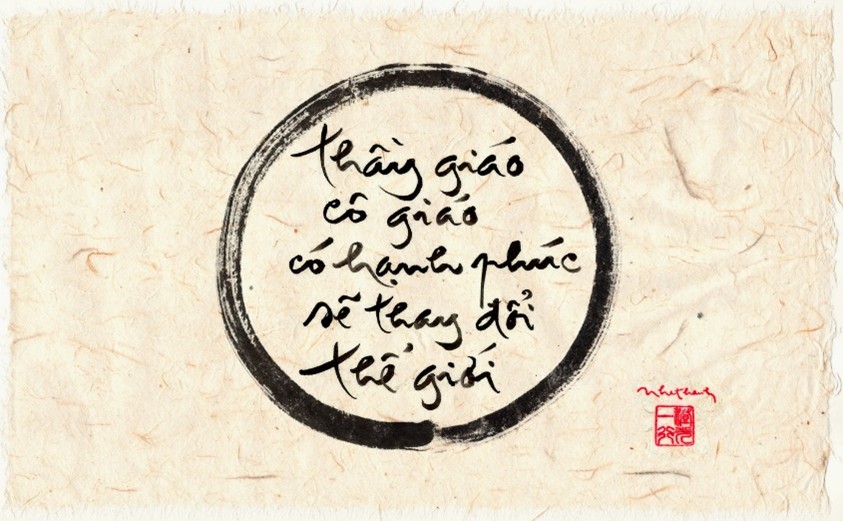 thầy giáo
cô giáo
có hạnh phúc
sẽ thay đổi
thế giới